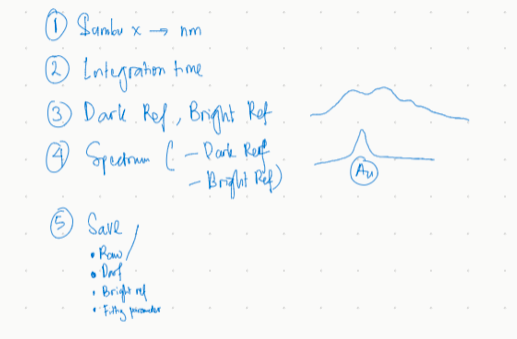 ① Sumbu x → nm
② Integration time
③ Dark Ref, Bright Ref
④ Spectrum ( - Dark Ref
- Bright Ref)
Au
⑤ Save
• Raw
• Bright ref
• Fitting parameter